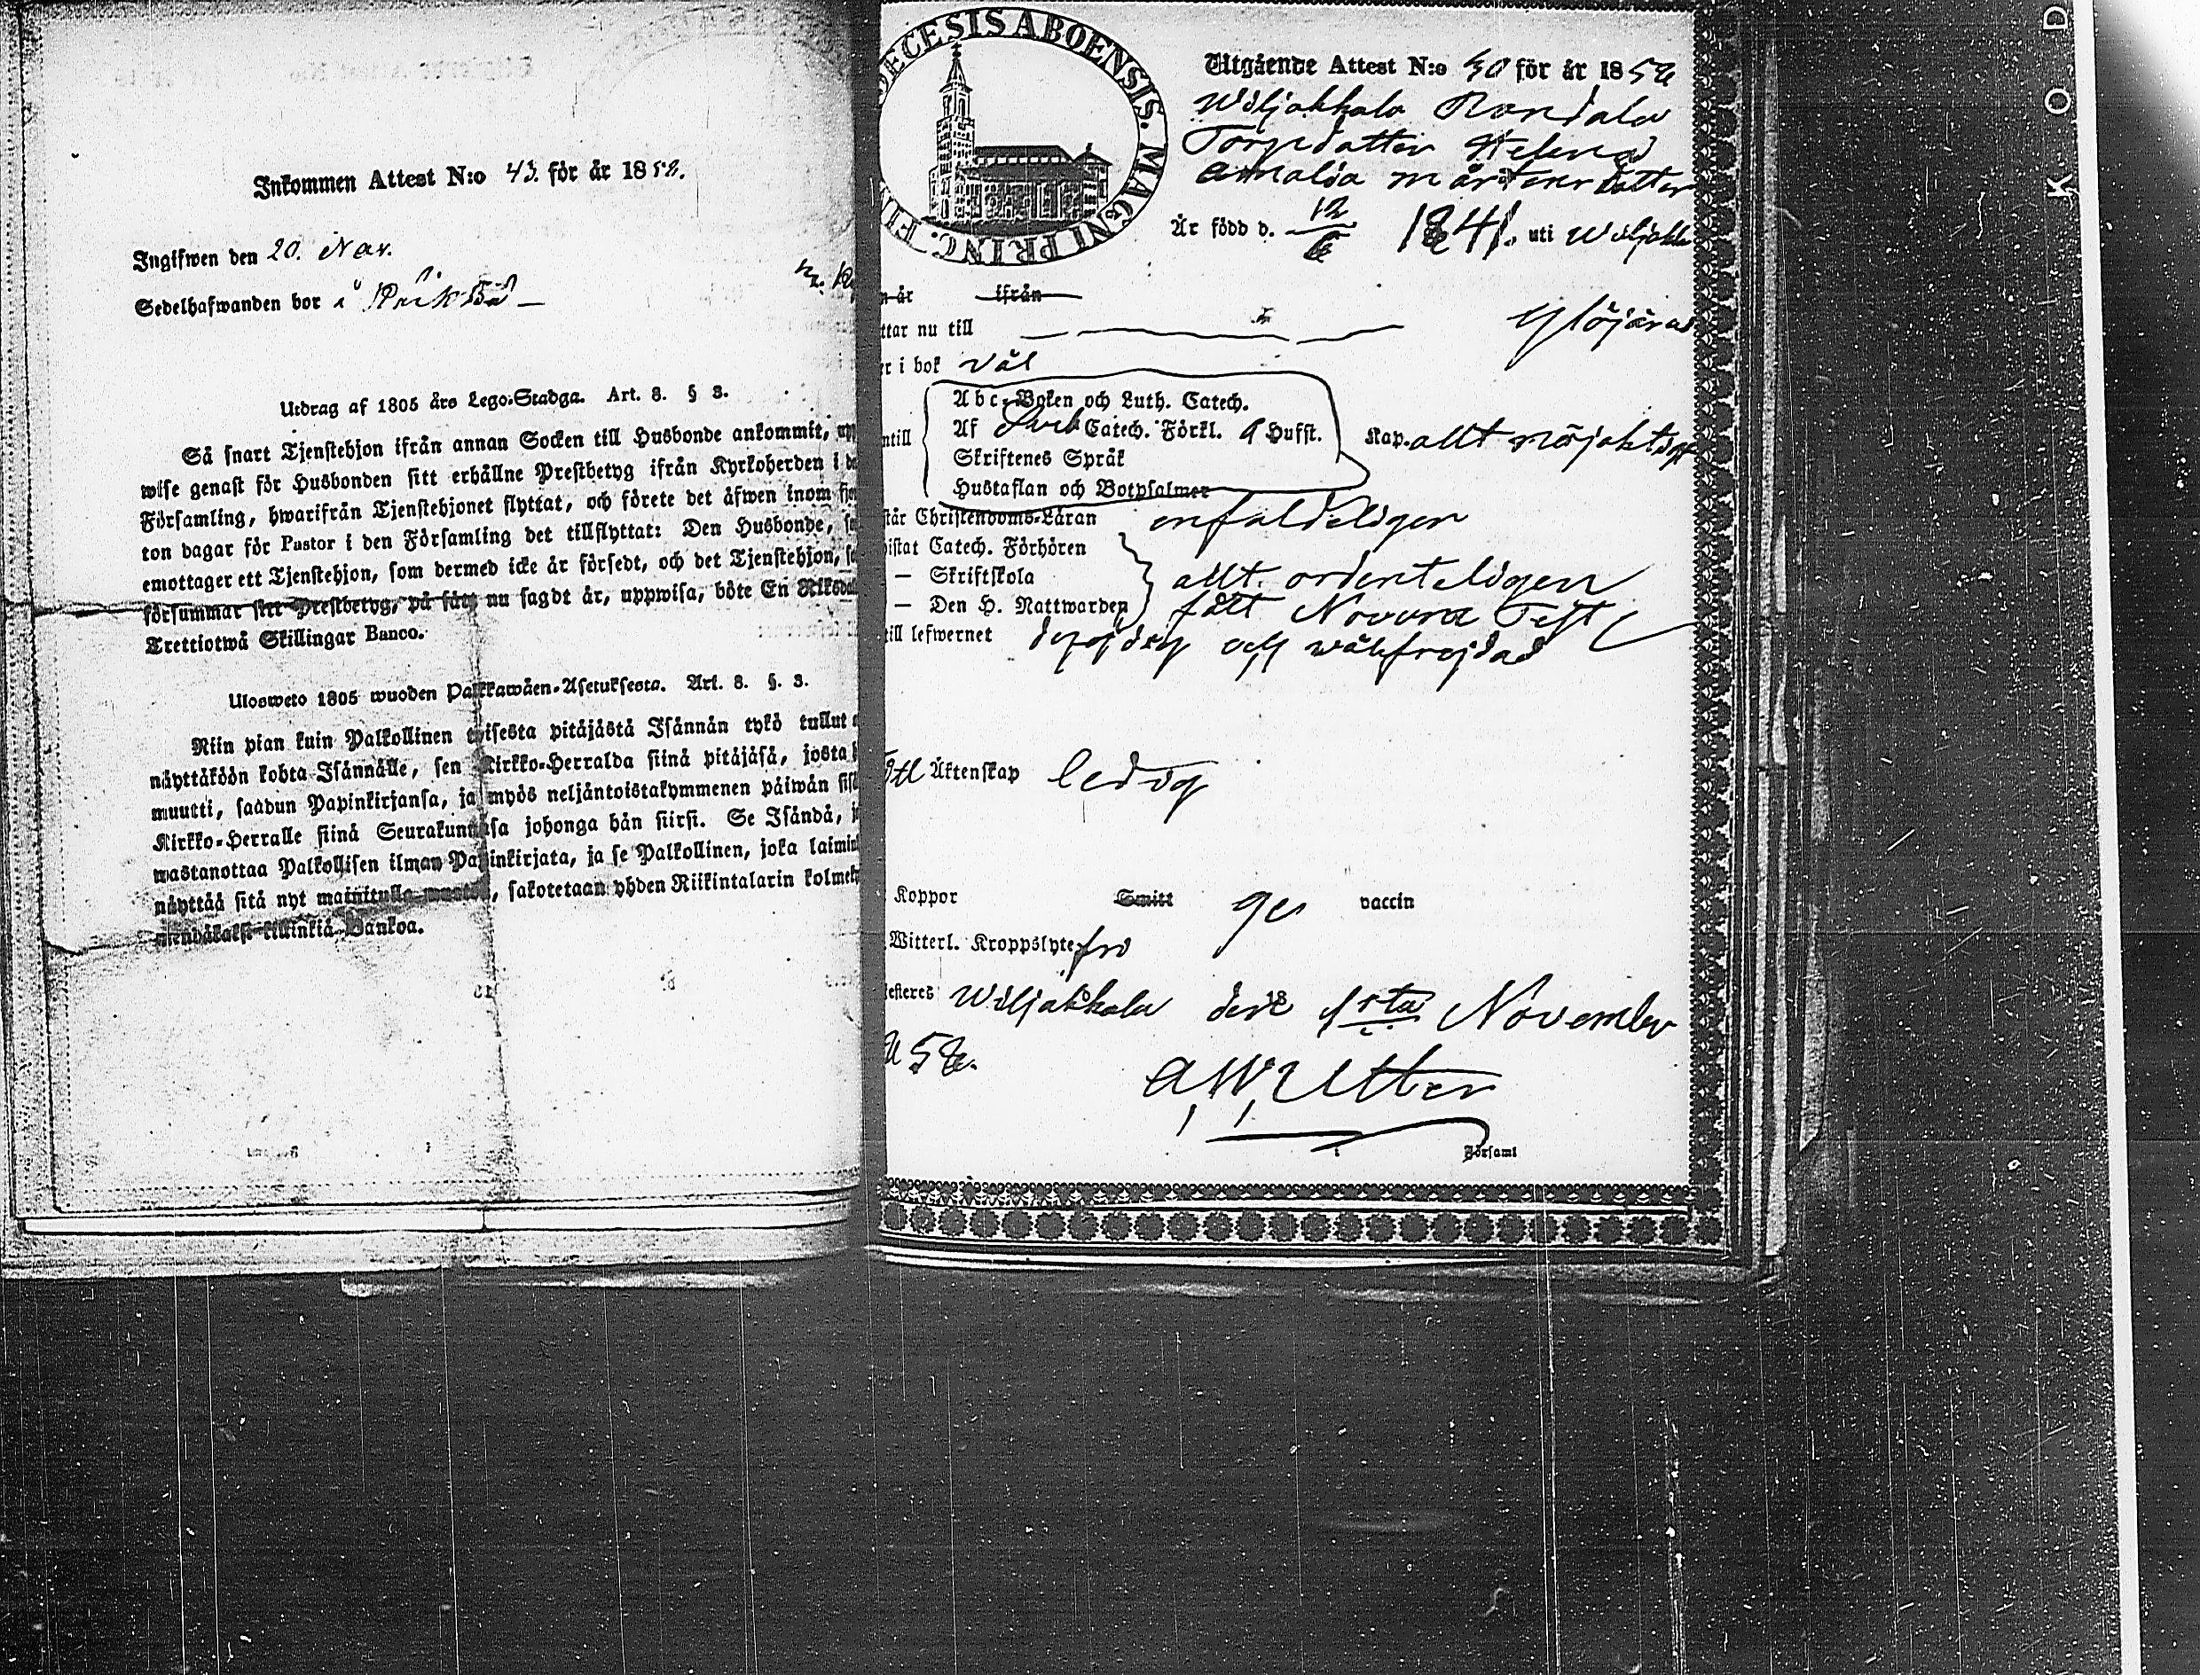 Inkommen Attest N:o 43. för år 1858.
Ingifwen den 20. Nov.
Sedelhafwanden bor i
Utdrag af 1805 års Lego-Stadga. Art. 8. § 3.
Så snart Tjenstehjon ifrån annan Socken till Husbonde ankommit,
wise genast för Husbonden sitt erhållne Prestbetyg ifrån Kyrkoherden i
Församling, hwarifrån Tjenstehjonet flyttat, och förete det äfwen inom
ton dagar för Pastor i den Församling det tillflyttat: Den Husbonde,
emottager ett Tjenstehjon, som dermed icke är försedt, och det Tjenstehjon,
försummar sitt Prestbetyg, på sätt nu sagdt är, uppwisa, böte En
Trettiotwå Skillingar Banco.
Ulosweto 1805 wuoden Palkkawäen-Asetuksesta. Art. 8. §. 3.
Niin pian kuin Palkollinen toisesta pitäjästä Isännän tykö tullut
näyttäköön kohta Isännälle, sen Kirkko-Herralda siinä pitäjäsä, josta
muutti, saadun Papinkirjansa, ja myös neljäntoistakymmenen päiwän
Kirkko-Herralle siinä Seurakunnasa johonga hän siirsi. Se Isändä,
wastanottaa Palkollisen ilman Papinkirjata, ja se Palkollinen, joka
näyttää sitä nyt mainitulla, sakotetaan yhden Riikintalarin
killinkiä Bankoa.
DECESIS ABOENSIS. MAGNI PRINC.
Utgående Attest N:o 40 för år 1858
Wiljakkala
Torpdotter Helena
Amalia Mårtensdotter
Är född d. 12/6 1841. uti Wiljakk
n år ifrån
ttar nu till Ylöjärvi
r i bok väl
Abc-Boken och Luth. Catech.
ntill Af Catech. Förkl. Hufst. Kap. allt nöjaktigt
Skriftenes Språk
Hustaflan och Botpsalmer
står Christendoms-Läran enfaldeligen
istat Catech. Förhören
— Skriftskola allt ordenteligen
— Den H. Nattwarden fått Novum Test
till lefwernet och wälfrejdad
Äktenskap ledig
Koppor Smitt vaccin
Witterl. Kroppslyte fri
esteres Wiljakkala den 1sta November
58.
A. W. Utter
Församl
KOD